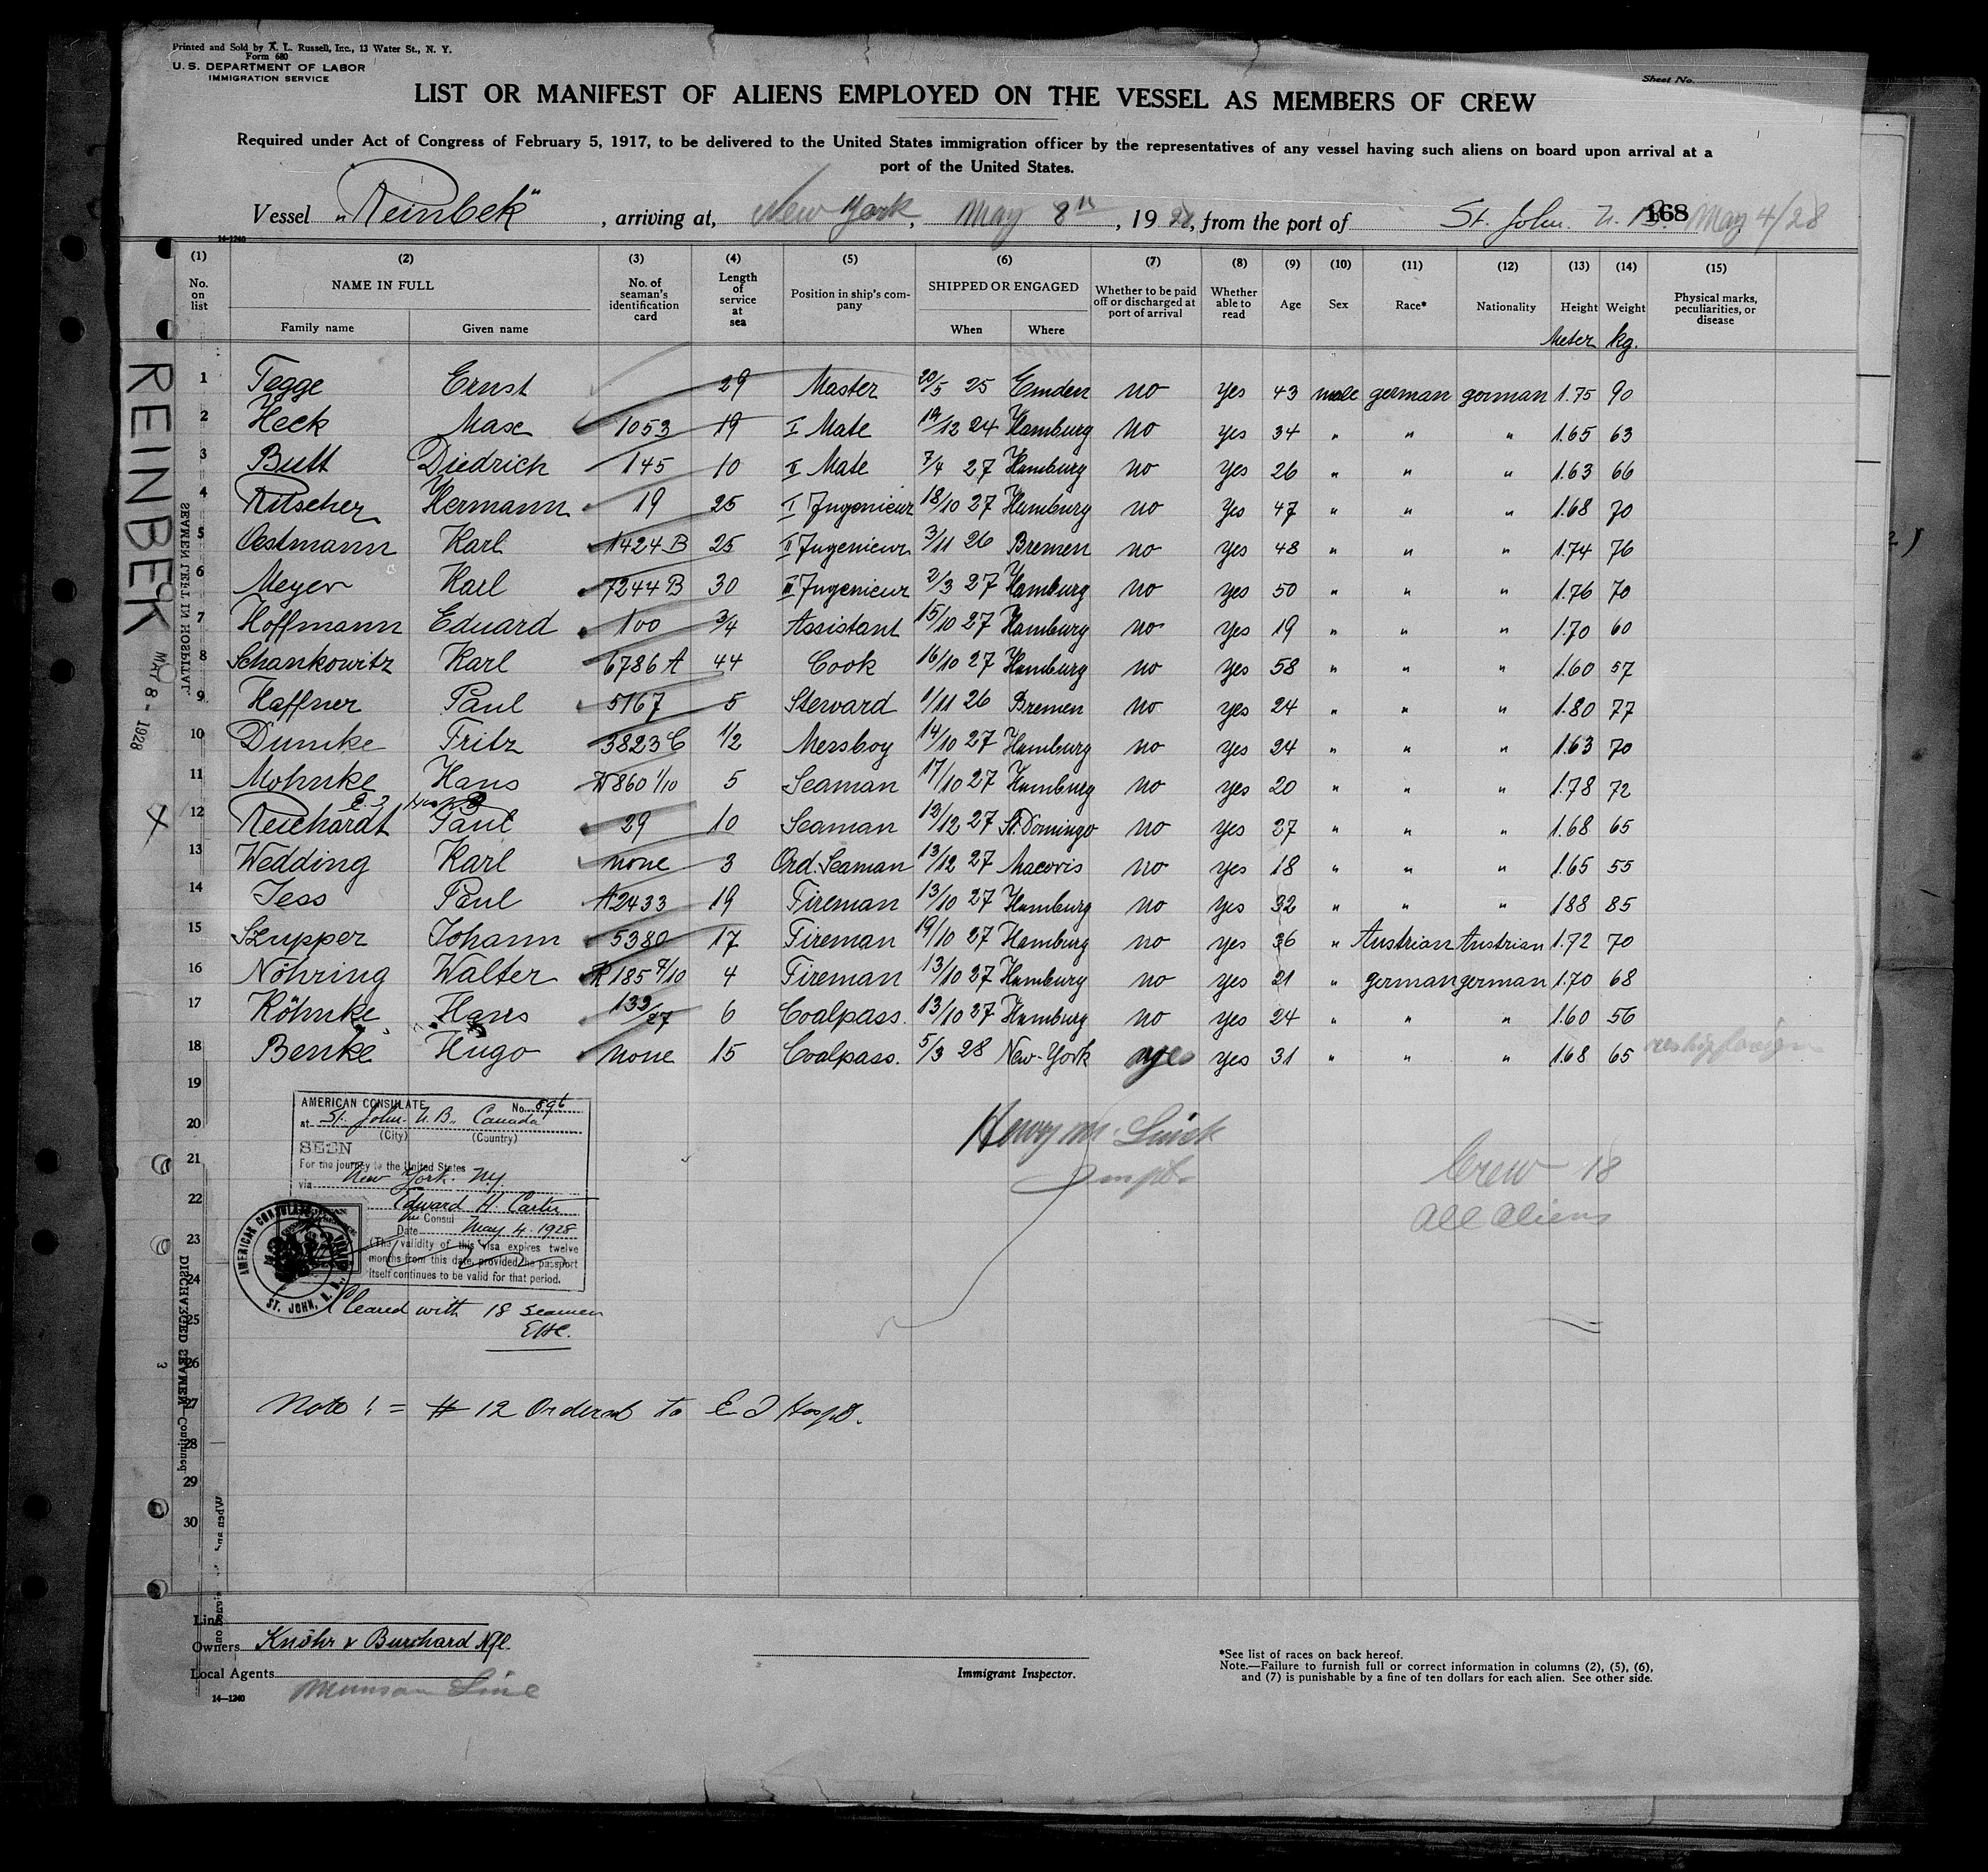 Printed and Sold by A. L. Russell, Inc., 13 Water St., N. Y.
Form 680
U. S. DEPARTMENT OF LABOR
IMMIGRATION SERVICE
Sheet No.
LIST OR MANIFEST OF ALIENS EMPLOYED ON THE VESSEL AS MEMBERS OF CREW
Required under Act of Congress of February 5, 1917, to be delivered to the United States immigration officer by the representatives of any vessel having such aliens on board upon arrival at a
port of the United States.
Vessel „Reinbek" , arriving at, New York, May 8th , 1928, from the port of St. John. N. B. 168 May 4/28
14-1240
(1) (2) (3) (4) (5) (6) (7) (8) (9) (10) (11) (12) (13) (14) (15)
No. on list NAME IN FULL No. of seaman's identification card Length of service at sea Position in ship's company SHIPPED OR ENGAGED Whether to be paid off or discharged at port of arrival Whether able to read Age Sex Race* Nationality Height Weight Physical marks, peculiarities, or disease
Family name Given name When Where Meter kg.
1 Tegge Ernst 29 Master 20/5 25 Emden no yes 43 male german german 1.75 90
2 Heck Max 1053 19 I Mate 19/12 24 Hamburg no yes 34 " " " 1.65 63
3 Butt Diedrich 145 10 II Mate 7/4 27 Hamburg no yes 26 " " " 1.63 66
4 Ritscher Hermann 19 25 I Ingenieur 18/10 27 Hamburg no yes 47 " " " 1.68 70
5 Oestmann Karl 1424 B 25 II Ingenieur 3/11 26 Bremen no yes 48 " " " 1.74 76
6 Meyer Karl 7244 B 30 III Ingenieur 2/3 27 Hamburg no yes 50 " " " 1.76 70
7 Hoffmann Eduard 100 3/4 Assistant 15/10 27 Hamburg no yes 19 " " " 1.70 60
8 Schankowitz Karl 6786 A 44 Cook 16/10 27 Hamburg no yes 58 " " " 1.60 57
9 Haffner Paul 5167 5 Steward 1/11 26 Bremen no yes 24 " " " 1.80 77
10 Dumke Fritz 3823 C 1/2 Messboy 14/10 27 Hamburg no yes 24 " " " 1.63 70
11 Mohnke Hans W 860 1/10 5 Seaman 17/10 27 Hamburg no yes 20 " " " 1.78 72
12 Reichardt Paul 29 10 Seaman 12/12 27 St. Domingo no yes 27 " " " 1.68 65
13 Wedding Karl none 3 Ord. Seaman 13/12 27 Macoris no yes 18 " " " 1.65 55
14 Jess Paul A 2433 19 Fireman 13/10 27 Hamburg no yes 32 " " " 188 85
15 Szupper Johann 5380 17 Fireman 19/10 27 Hamburg no yes 36 " Austrian Austrian 1.72 70
16 Nöhring Walter R 185 7/10 4 Fireman 13/10 27 Hamburg no yes 21 " german german 1.70 68
17 Köhnke Hans 133/27 6 Coalpass. 13/10 27 Hamburg no yes 24 " " " 1.60 56
18 Benke Hugo none 15 Coalpass. 5/3 28 New-York yes yes 31 " " " 1.68 65 reship foreign
19
20
21
22
23
24
25
26
27
28
29
30
AMERICAN CONSULATE No. 896
at St. John N. B., Canada
(City) (Country)
SEEN
For the journey to the United States
via New York. N.y.
Edward H. Carter
Vice Consul
Date May 4. 1928
(The validity of this visa expires twelve
months from this date, provided the passport
itself continues to be valid for that period.
AMERICAN CONSULATE
ST. JOHN, N. B.
Cleared with 18 seamen
EHC.
Crew 18
All aliens
Note ! = # 12 Ordered to E I Hospt.
REINBEK
MAY 8 - 1928
SEAMEN LEFT IN HOSPITAL.
DISCHARGED SEAMEN—Continued
3
Line
Owners Knöhr & Burchard Nfl.
Local Agents Munson Line
14—1240
Immigrant Inspector.
*See list of races on back hereof.
Note.—Failure to furnish full or correct information in columns (2), (5), (6),
and (7) is punishable by a fine of ten dollars for each alien. See other side.